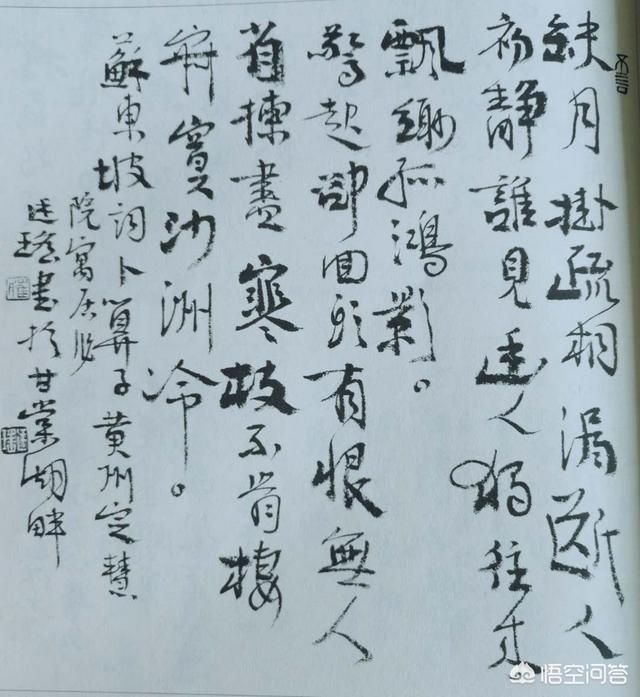 缺月掛疏桐漏斷人
初靜誰見幽人獨往來
飄緲孤鴻影。
驚起卻回頭有恨無人
省揀盡寒枝不肯棲
寂寞沙洲冷。
蘇東坡詞卜算子黃州定慧
院寓居作
書於甘棠湖畔
悟空问答